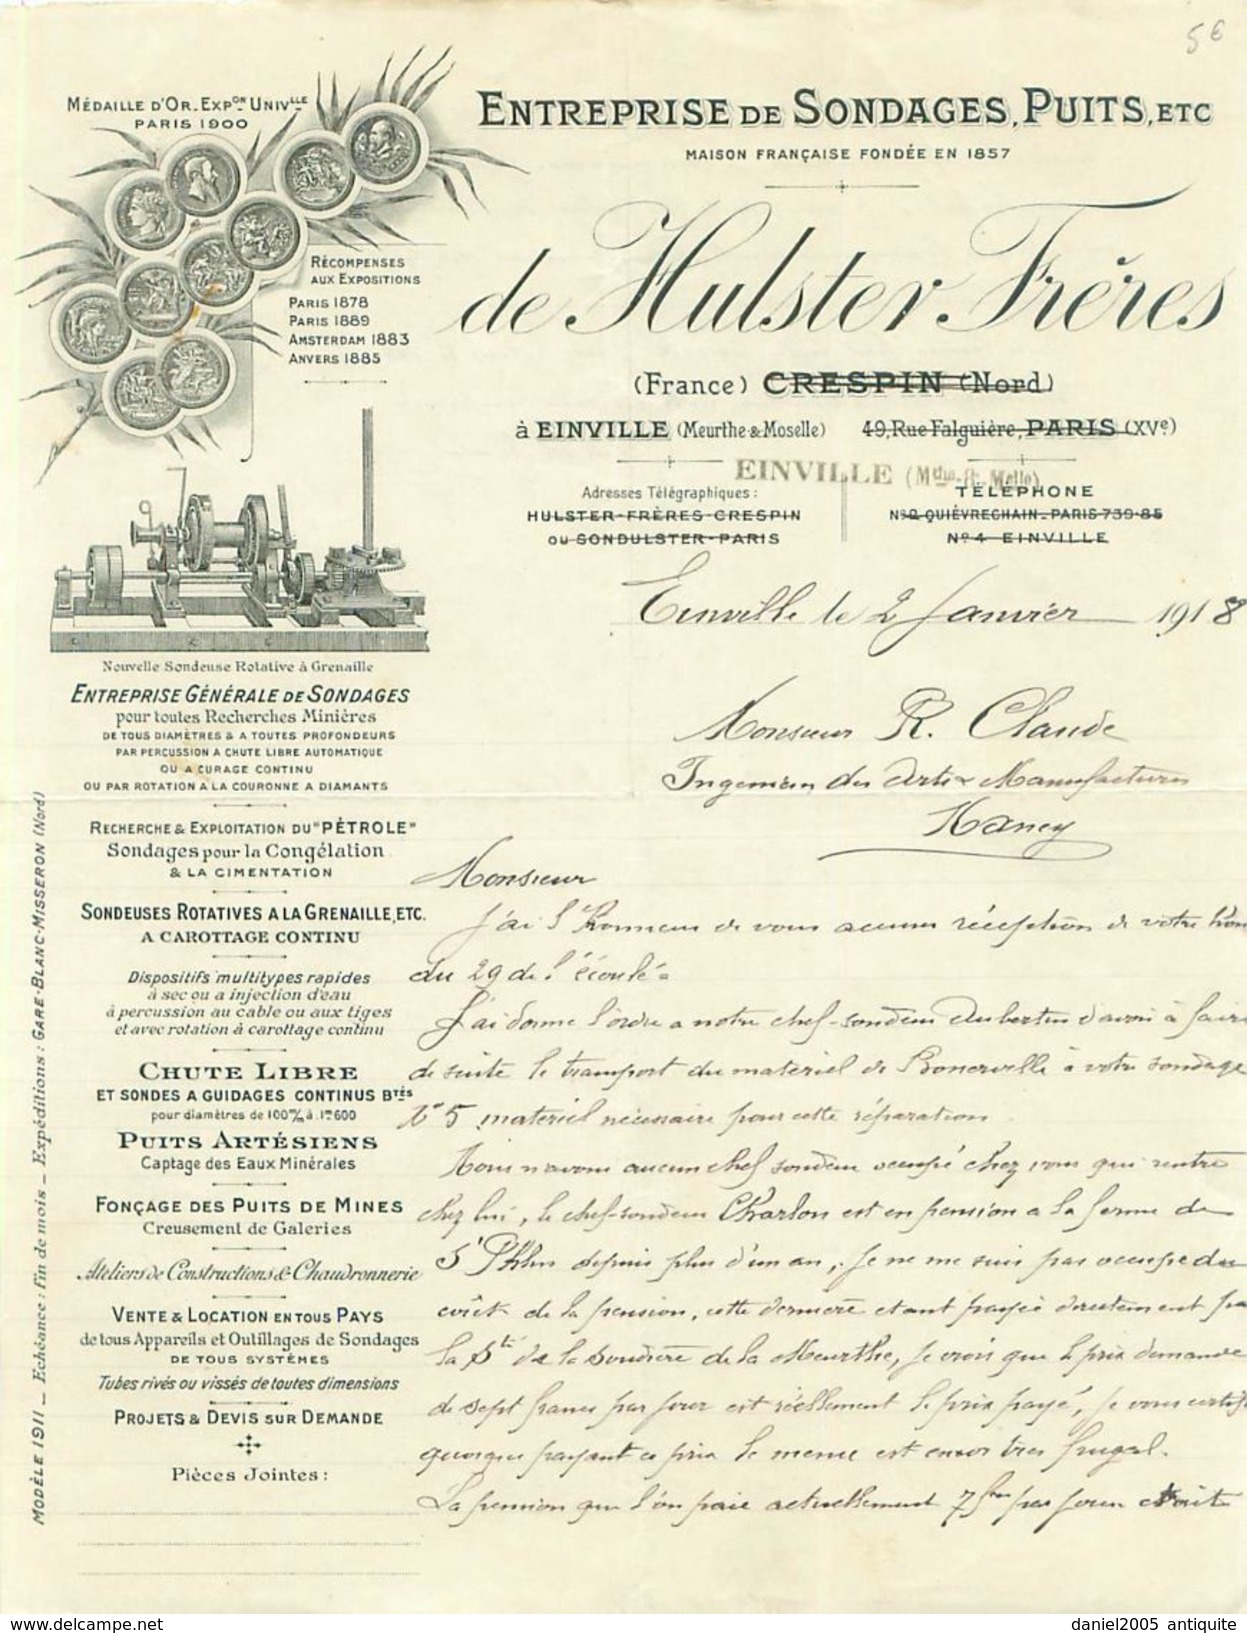 5 €
MÉDAILLE D'OR. EXPON UNIVLLE
PARIS 1900
ENTREPRISE DE SONDAGES, PUITS, ETC
MAISON FRANÇAISE FONDÉE EN 1857
RÉCOMPENSES
AUX EXPOSITIONS
PARIS 1878
PARIS 1889
AMSTERDAM 1883
ANVERS 1885
de Hulster Frères
(France) CRESPIN (Nord)
à EINVILLE (Meurthe & Moselle) 49, Rue Falguière, PARIS (XVe)
EINVILLE (Mthe-&-Melle)
Adresses Télégraphiques :
HULSTER-FRÈRES-CRESPIN
OU SONDULSTER-PARIS
TÉLÉPHONE
No 2 QUIÉVRECHAIN - PARIS 739-85
No 4 EINVILLE
Einville le 2 Janvier 1918
Nouvelle Sondeuse Rotative à Grenaille
ENTREPRISE GÉNÉRALE DE SONDAGES
pour toutes Recherches Minières
DE TOUS DIAMÈTRES & A TOUTES PROFONDEURS
PAR PERCUSSION A CHUTE LIBRE AUTOMATIQUE
OU A CURAGE CONTINU
OU PAR ROTATION A LA COURONNE A DIAMANTS
RECHERCHE & EXPLOITATION DU "PÉTROLE"
Sondages pour la Congélation
& LA CIMENTATION
SONDEUSES ROTATIVES A LA GRENAILLE, ETC.
A CAROTTAGE CONTINU
Dispositifs multitypes rapides
à sec ou a injection d'eau
à percussion au cable ou aux tiges
et avec rotation à carottage continu
CHUTE LIBRE
ET SONDES A GUIDAGES CONTINUS Btés
pour diamètres de 100m/m à 1m600
PUITS ARTÉSIENS
Captage des Eaux Minérales
FONÇAGE DES PUITS DE MINES
Creusement de Galeries
Ateliers de Constructions & Chaudronnerie
VENTE & LOCATION EN TOUS PAYS
de tous Appareils et Outillages de Sondages
DE TOUS SYSTÈMES
Tubes rivés ou vissés de toutes dimensions
PROJETS & DEVIS SUR DEMANDE
Pièces Jointes :
MODÈLE 1911 _ Echéance : Fin de mois _ Expéditions : GARE-BLANC-MISSERON (Nord)
Monsieur R. Claude
Ingenieur des Arts & Manufactures
Nancy
Monsieur
J'ai l'honneur de vous accuser réception de votre hon
du 29 de l'écoulé =
J'ai donné l'ordre a notre chef-sondeur Aubertin d'avoir à faire
de suite le transport du matériel de Bonnerville à votre sondage
No 5 matériel nécessaire pour cette réparation.
Nous n'avons aucun chef sondeur occupé chez vous qui rentre
chez lui, le chef-sondeur Charlon est en pension a la ferme de
St Phlin depuis plus d'un an, je ne me suis pas occupé du
coût de la pension, cette dernière etant payée directement pa
la Sté de la Soudière de la Meurthe, je crois que le prix demandé
de sept francs par jour est réellement le prix payé, je vous certifi
quoique payant ce prix le menu est encor tres frugal.
La pension que l'on paie actuellement 7 frs par jour etait
daniel2005 antiquite
https://www.delcampe.net